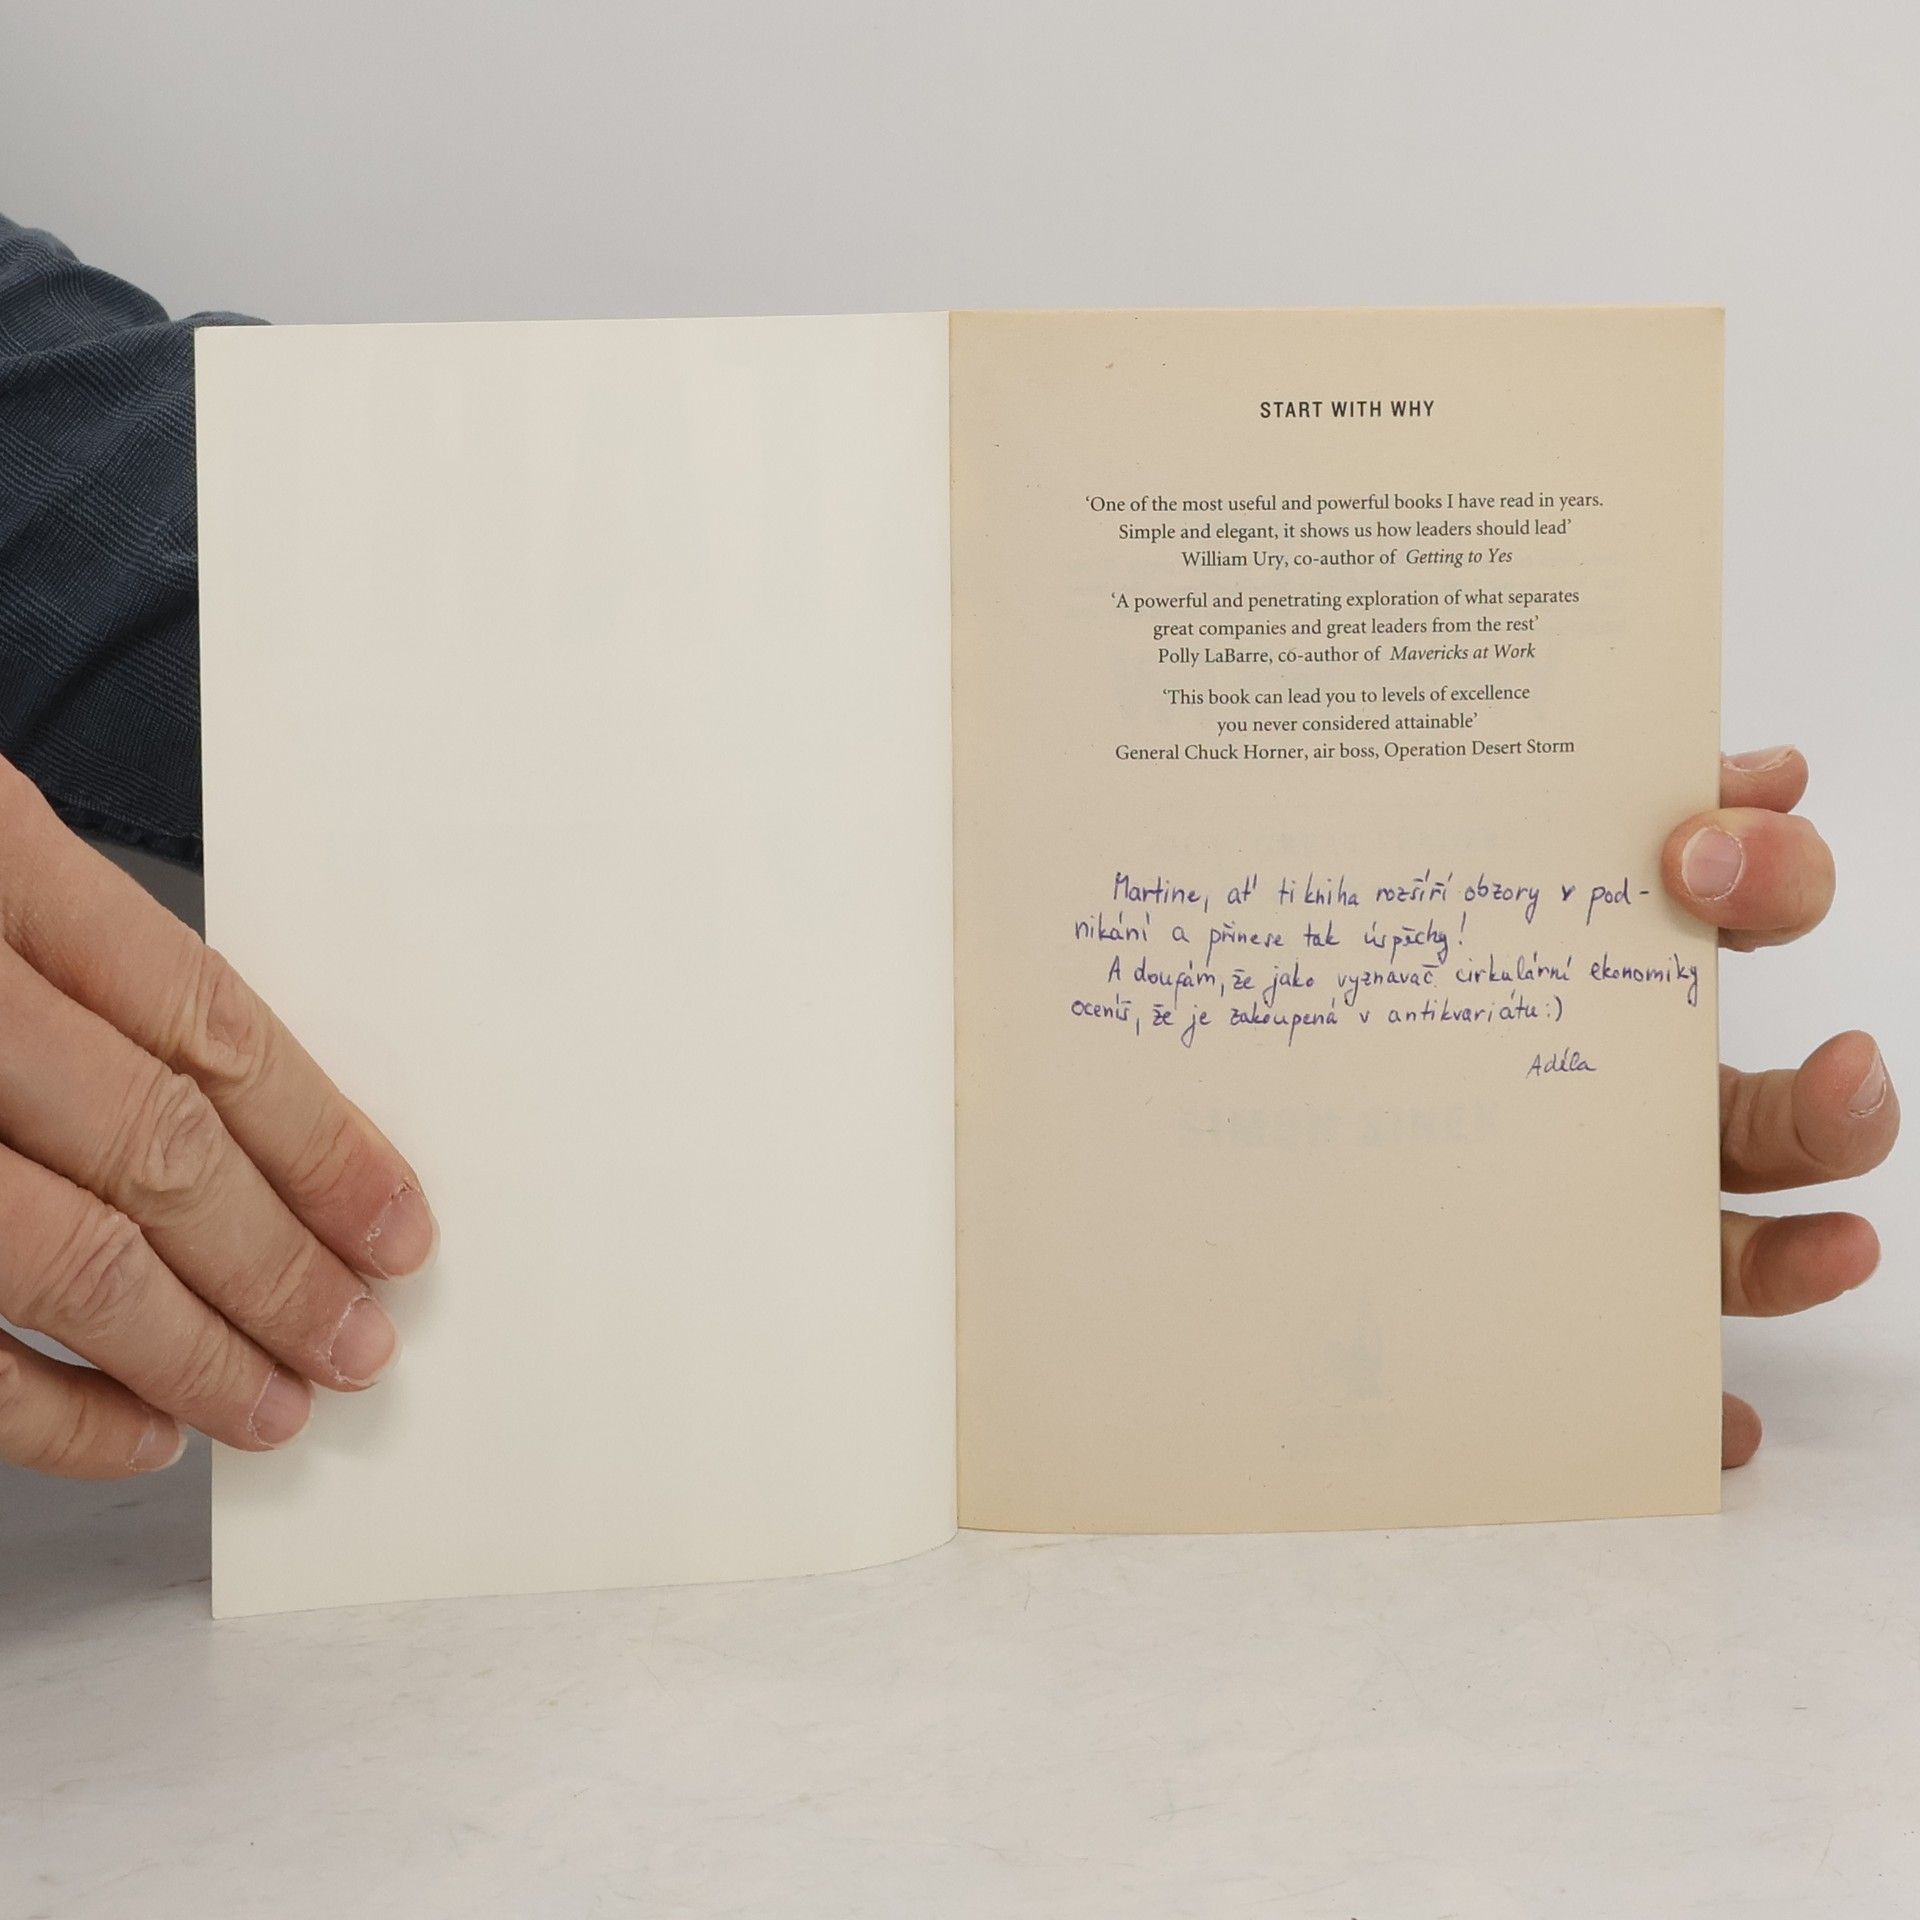 START WITH WHY
‘One of the most useful and powerful books I have read in years.
Simple and elegant, it shows us how leaders should lead’
William Ury, co-author of Getting to Yes
‘A powerful and penetrating exploration of what separates
great companies and great leaders from the rest’
Polly LaBarre, co-author of Mavericks at Work
‘This book can lead you to levels of excellence
you never considered attainable’
General Chuck Horner, air boss, Operation Desert Storm
Martine, ať ti kniha rozšíří obzory v pod-
nikání a přinese tak úspěchy!
A doufám, že jako vyznavač cirkulární ekonomiky
oceníš, že je zakoupená v antikvariátu :)
Adéla